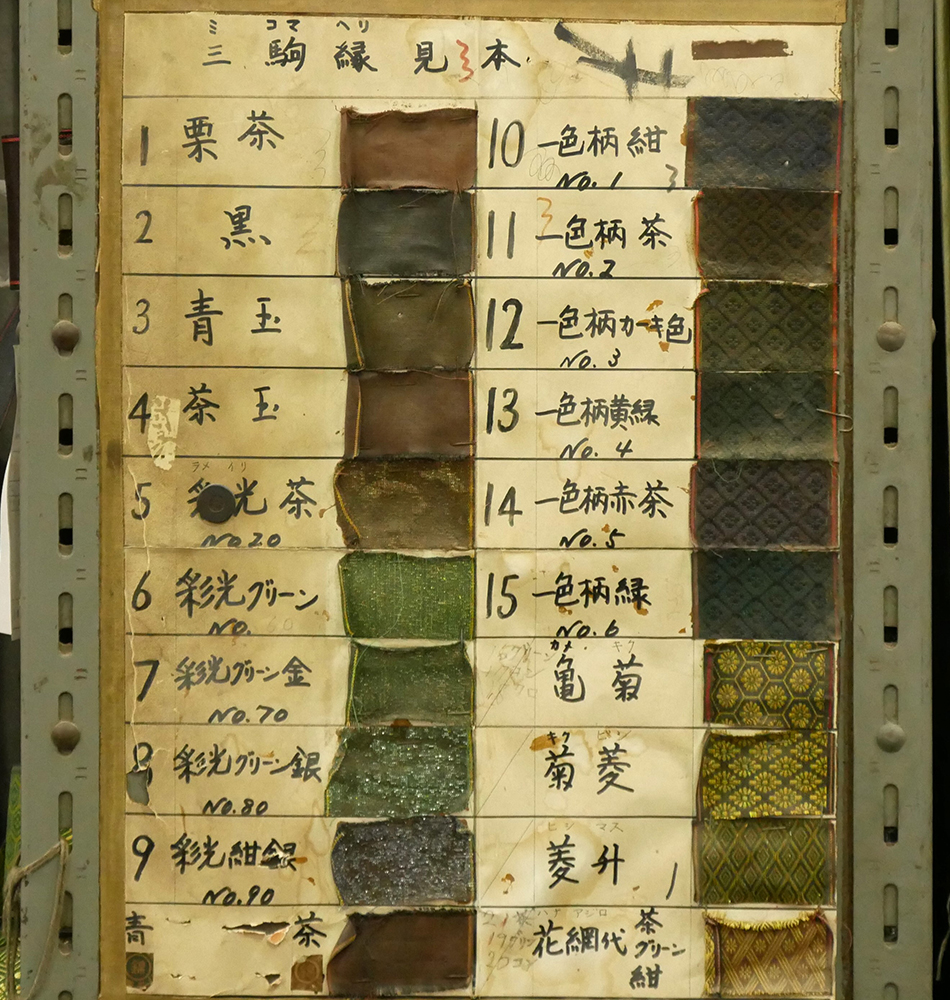 ミ コマ ヘリ
三 駒 縁 見 本
3
1 栗 茶
2 黒
3 青 玉
4 茶 玉
ラメ イリ
5 彩光 茶
No.20
6 彩光グリーン
No.
7 彩光グリーン金
No.70
8 彩光グリーン銀
No.80
9 彩光紺銀
No.90
青 茶
10 一色柄紺
No.1 3
3
11 一色柄 茶
No.2
12 一色柄カーキ色
No.3
13 一色柄黄緑
No.4
14 一色柄赤茶
No.5
15 一色柄緑
No.6
カメ キク
亀 菊
キク ビシ
菊 菱
ヒシ マス
菱 升
ハナ アジロ
花網代
茶
グリーン
紺